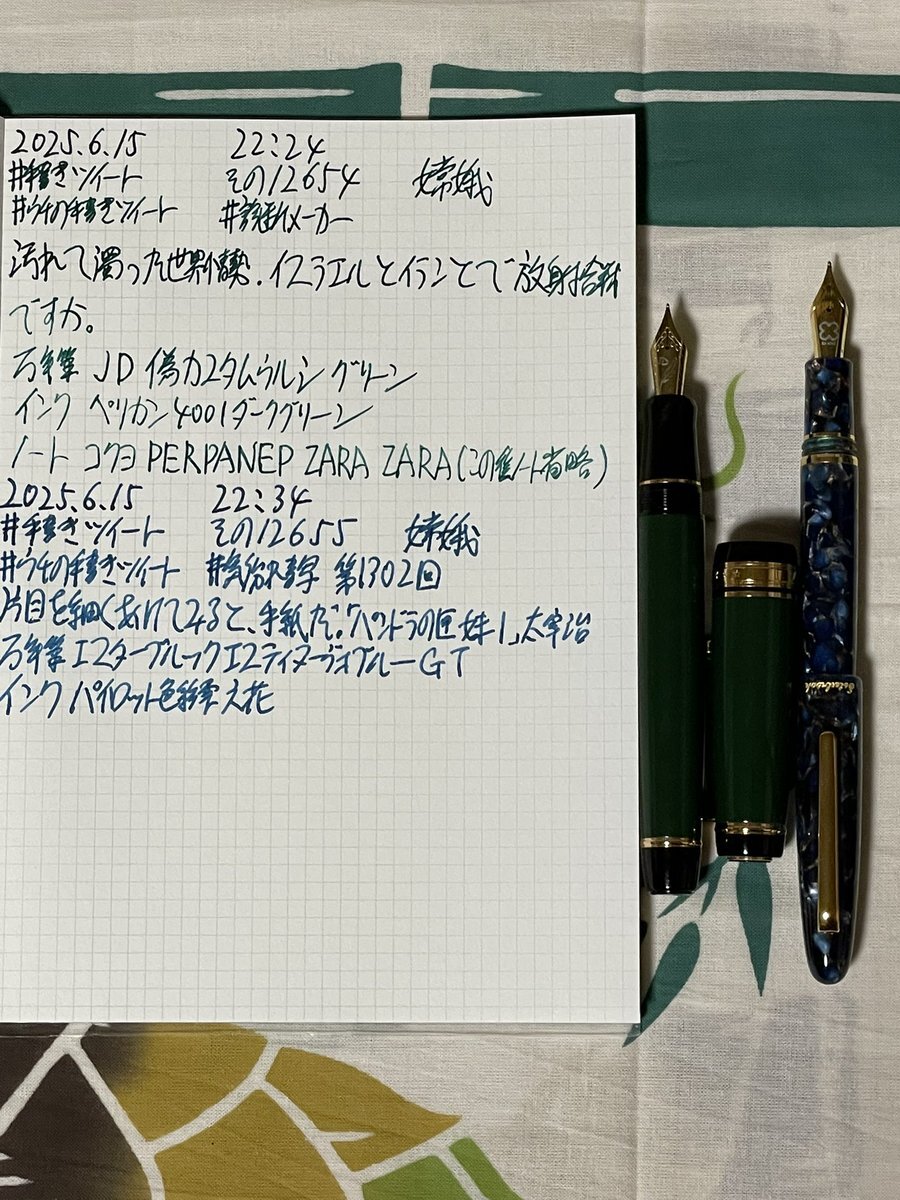 2025.6.15 22:24
#手書きツイート その12654 嫦娥
#ウチの手書きツイート #診断メーカー
汚れて濁った世界情勢.イスラエルとイランとで放射
ですか。
万年筆 JD 偽カスタムウルシ グリーン
インク ペリカン4001ダークグリーン
ノート コクヨ PERPANEP ZARA ZARA(この後ノート省略)
2025.6.15 22:34
#手書きツイート その12655 嫦娥
#ウチの手書きツイート 第1302回
片目を細くあけてみると、手紙だ。「パンドラの匣 妹」太宰治
万年筆 エスターブルック エスティ ヌーヴォブルーGT
インク パイロット色彩雫
Esterbrook